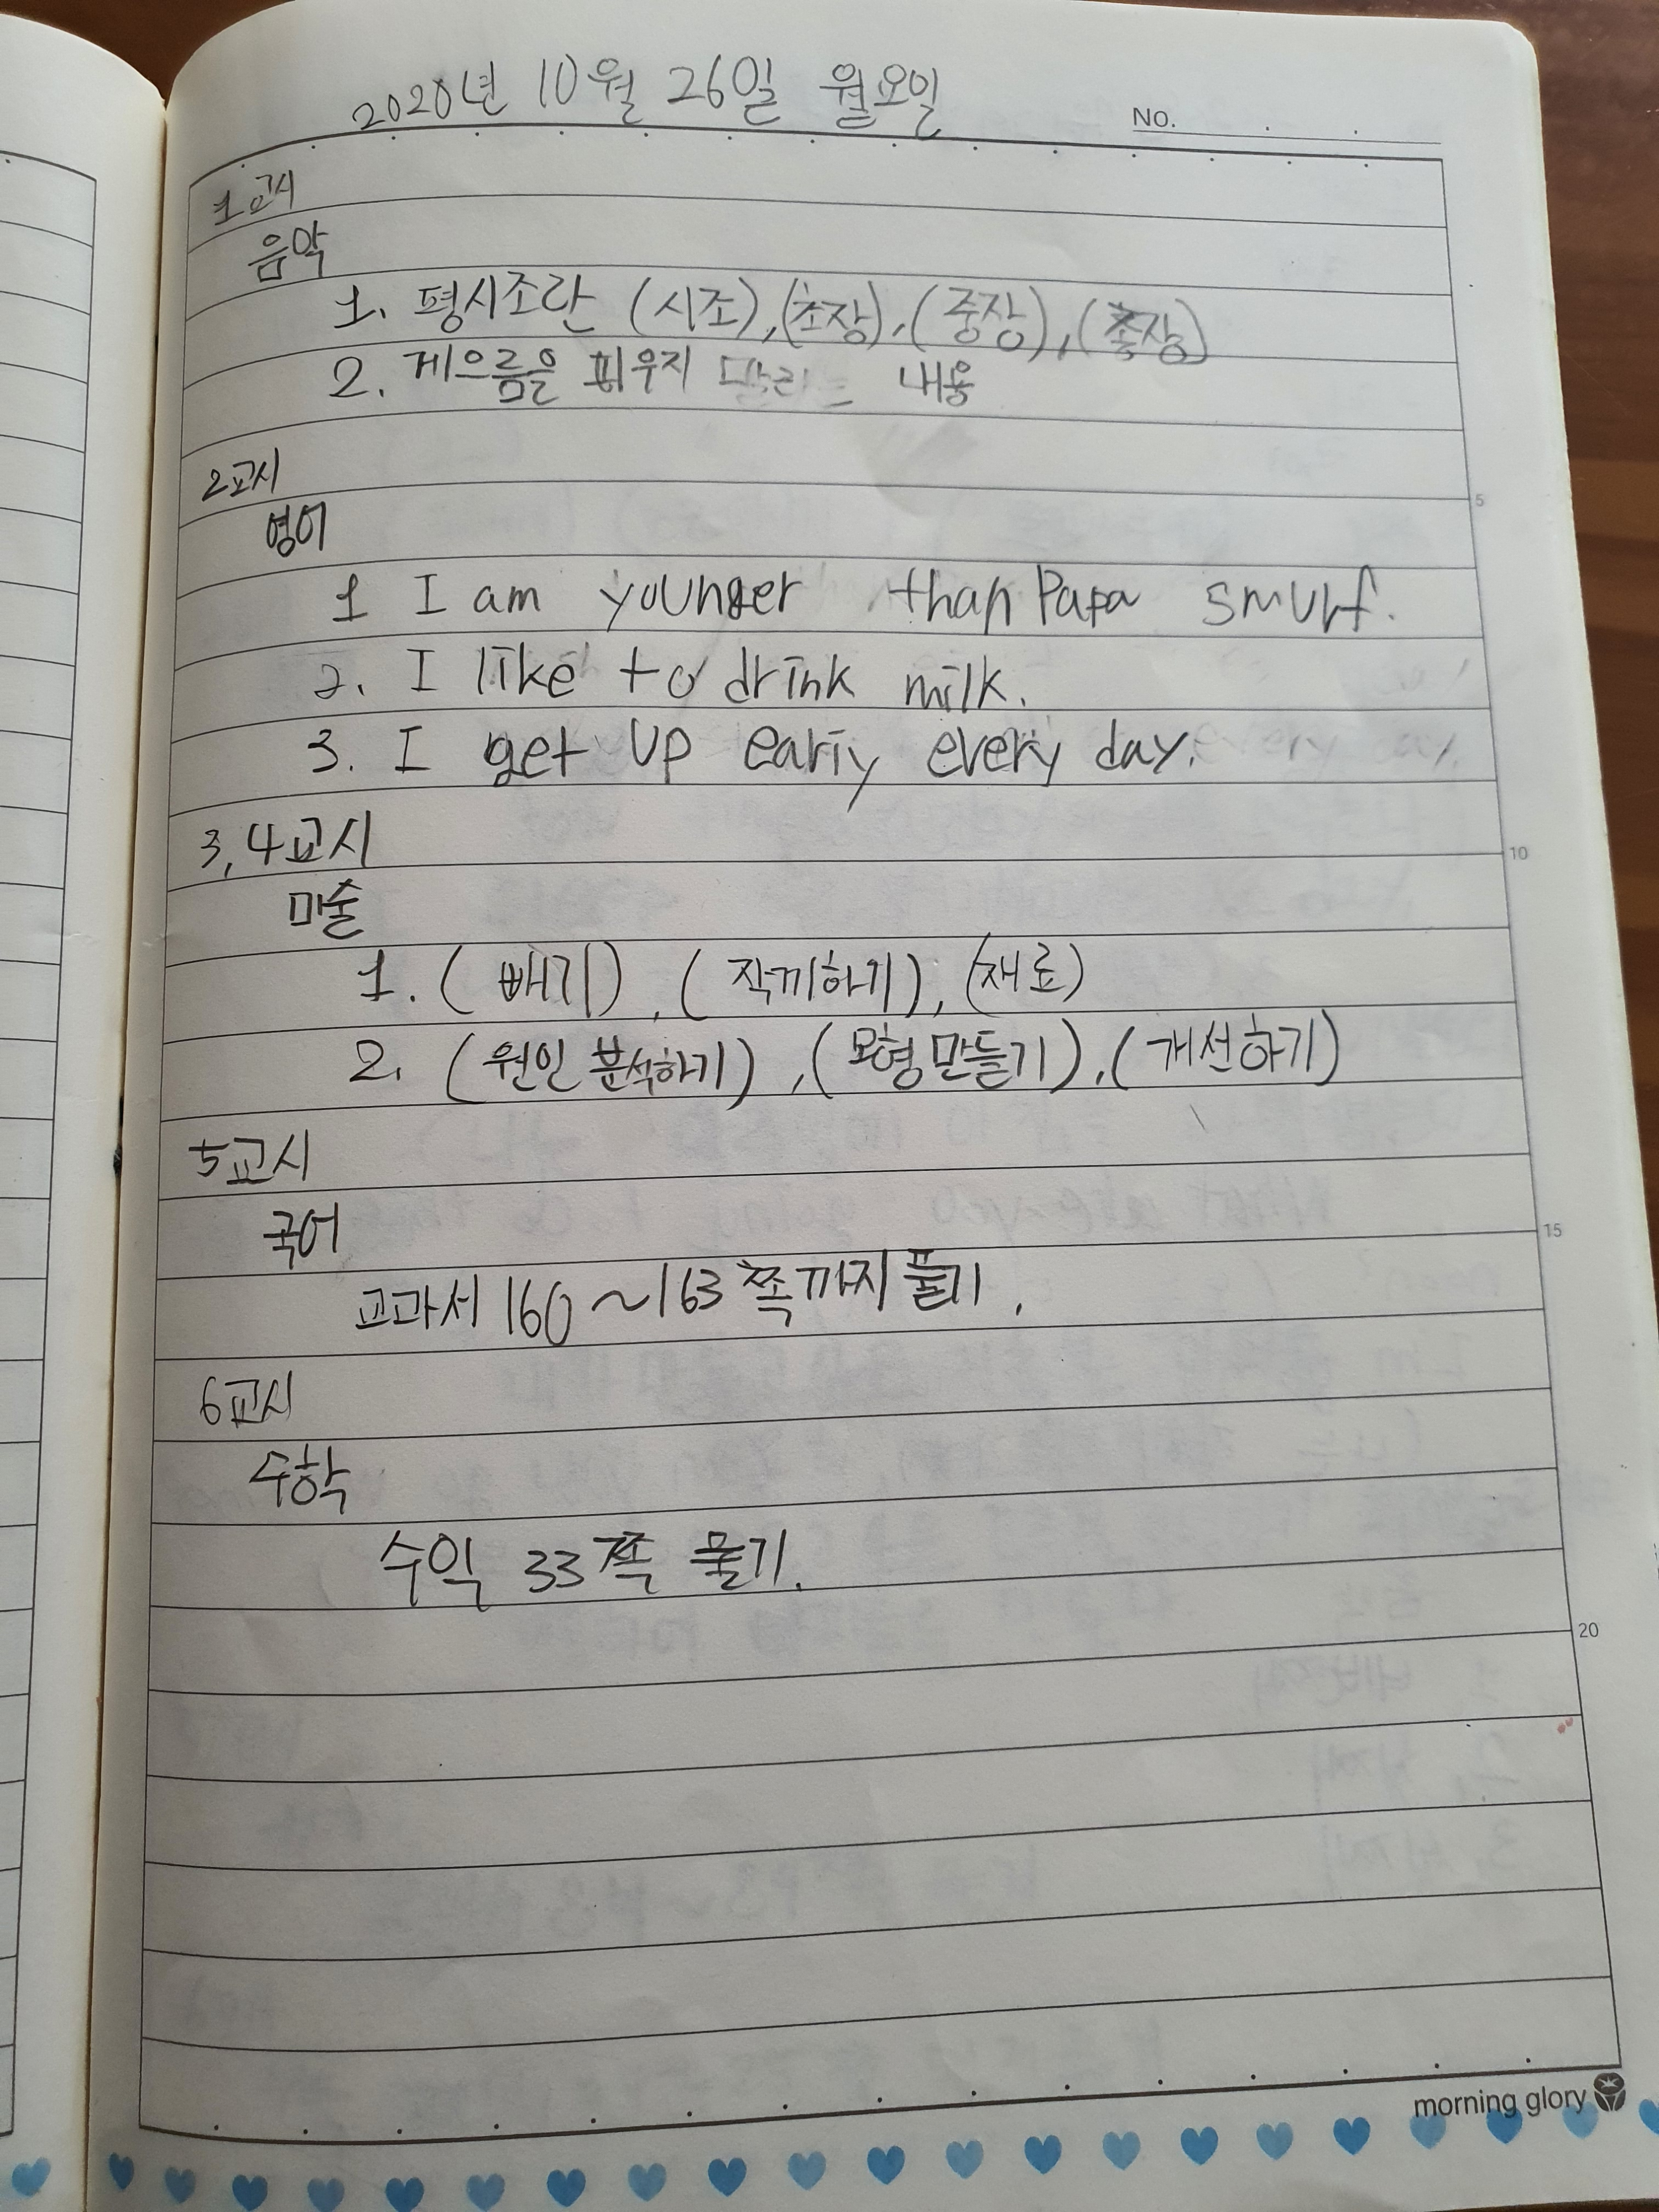 2020년 10월 26일 월요일
No.
1교시
음악
1. 평시조란 (시조), (초장), (중장), (종장)
2. 게으름을 피우지 말라는 내용
2교시
영어
1 I am younger than Papa smurf.
2. I like to drink milk.
3. I get up early every day.
3,4교시
미술
1. (빼기), (작게하기), (재료)
2. (원인 분석하기), (모형 만들기), (개선하기)
5교시
국어
교과서 160~163쪽까지 풀기.
6교시
수학
수익 33쪽 풀기.
5
10
15
20
morning glory